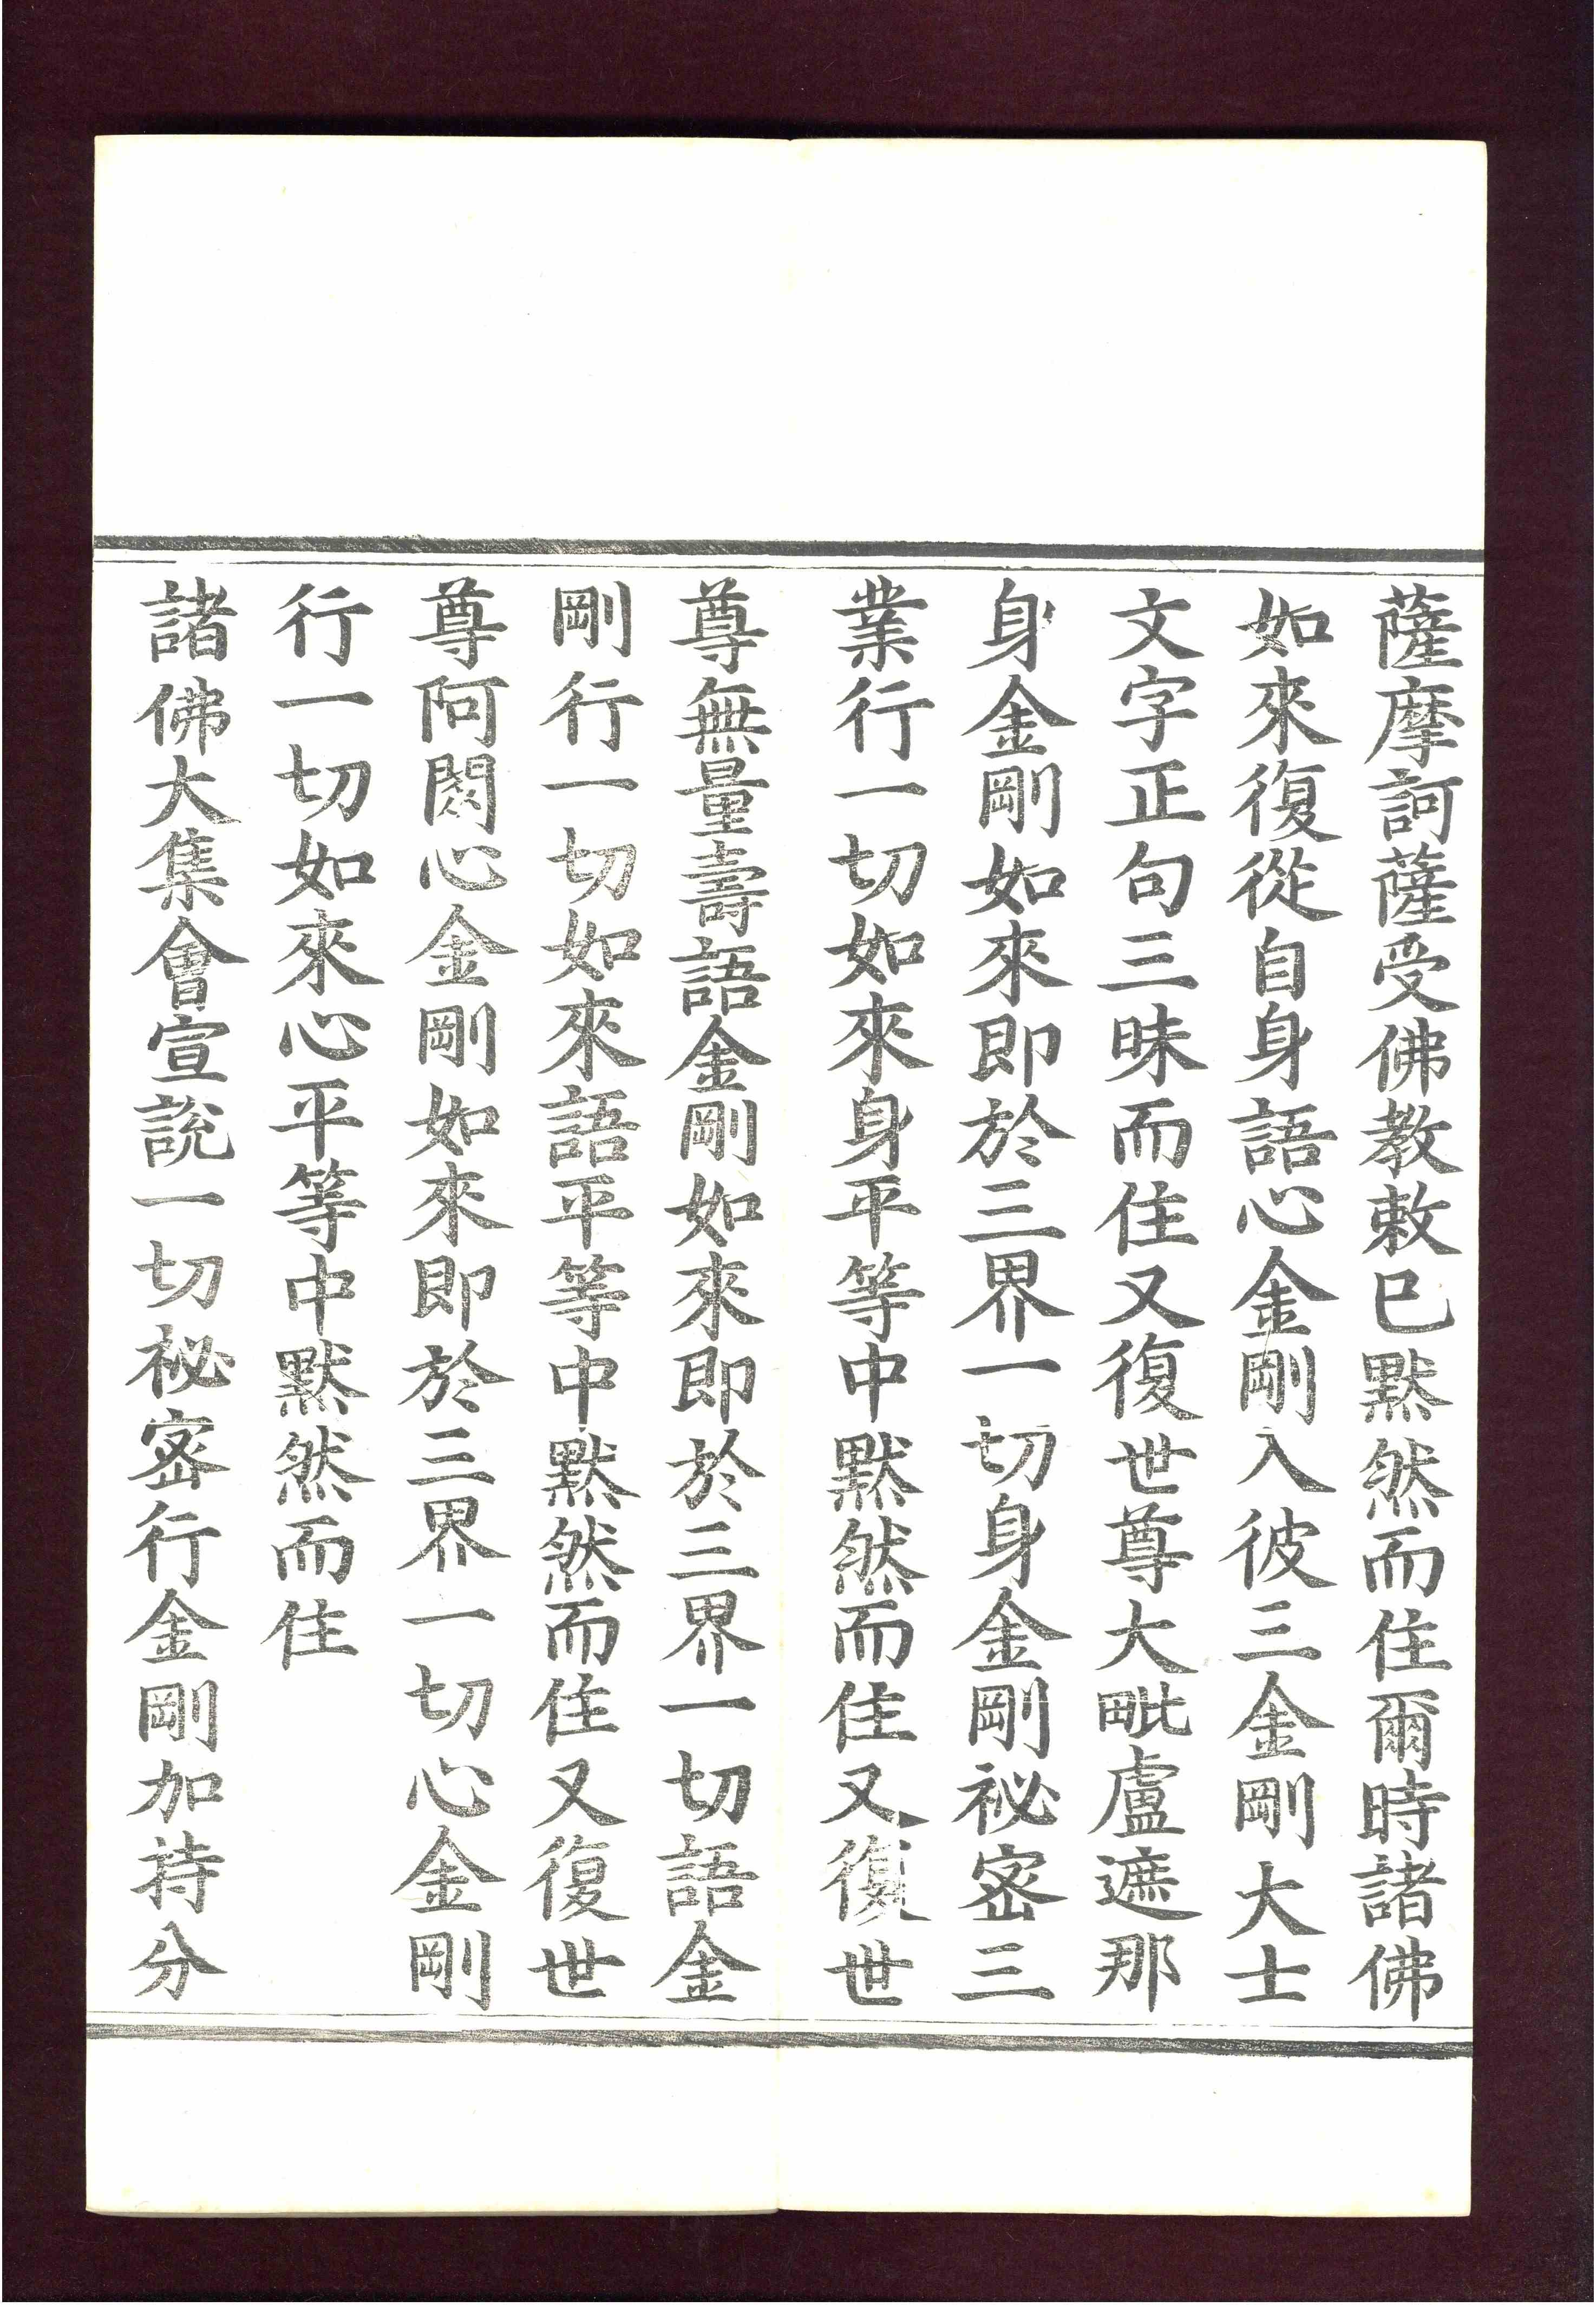 薩摩訶薩受佛教敕已默然而住爾時諸佛
如來復從自身語心金剛入彼三金剛大士
文字正句三昧而住又復世尊大毗盧遮那
身金剛如來即於三界一切身金剛祕密三
業行一切如來身平等中默然而住又復世
尊無量壽語金剛如來即於三界一切語金
剛行一切如來語平等中默然而住又復世
尊阿閦心金剛如來即於三界一切心金剛
行一切如來心平等中默然而住
諸佛大集會宣說一切祕密行金剛加持分